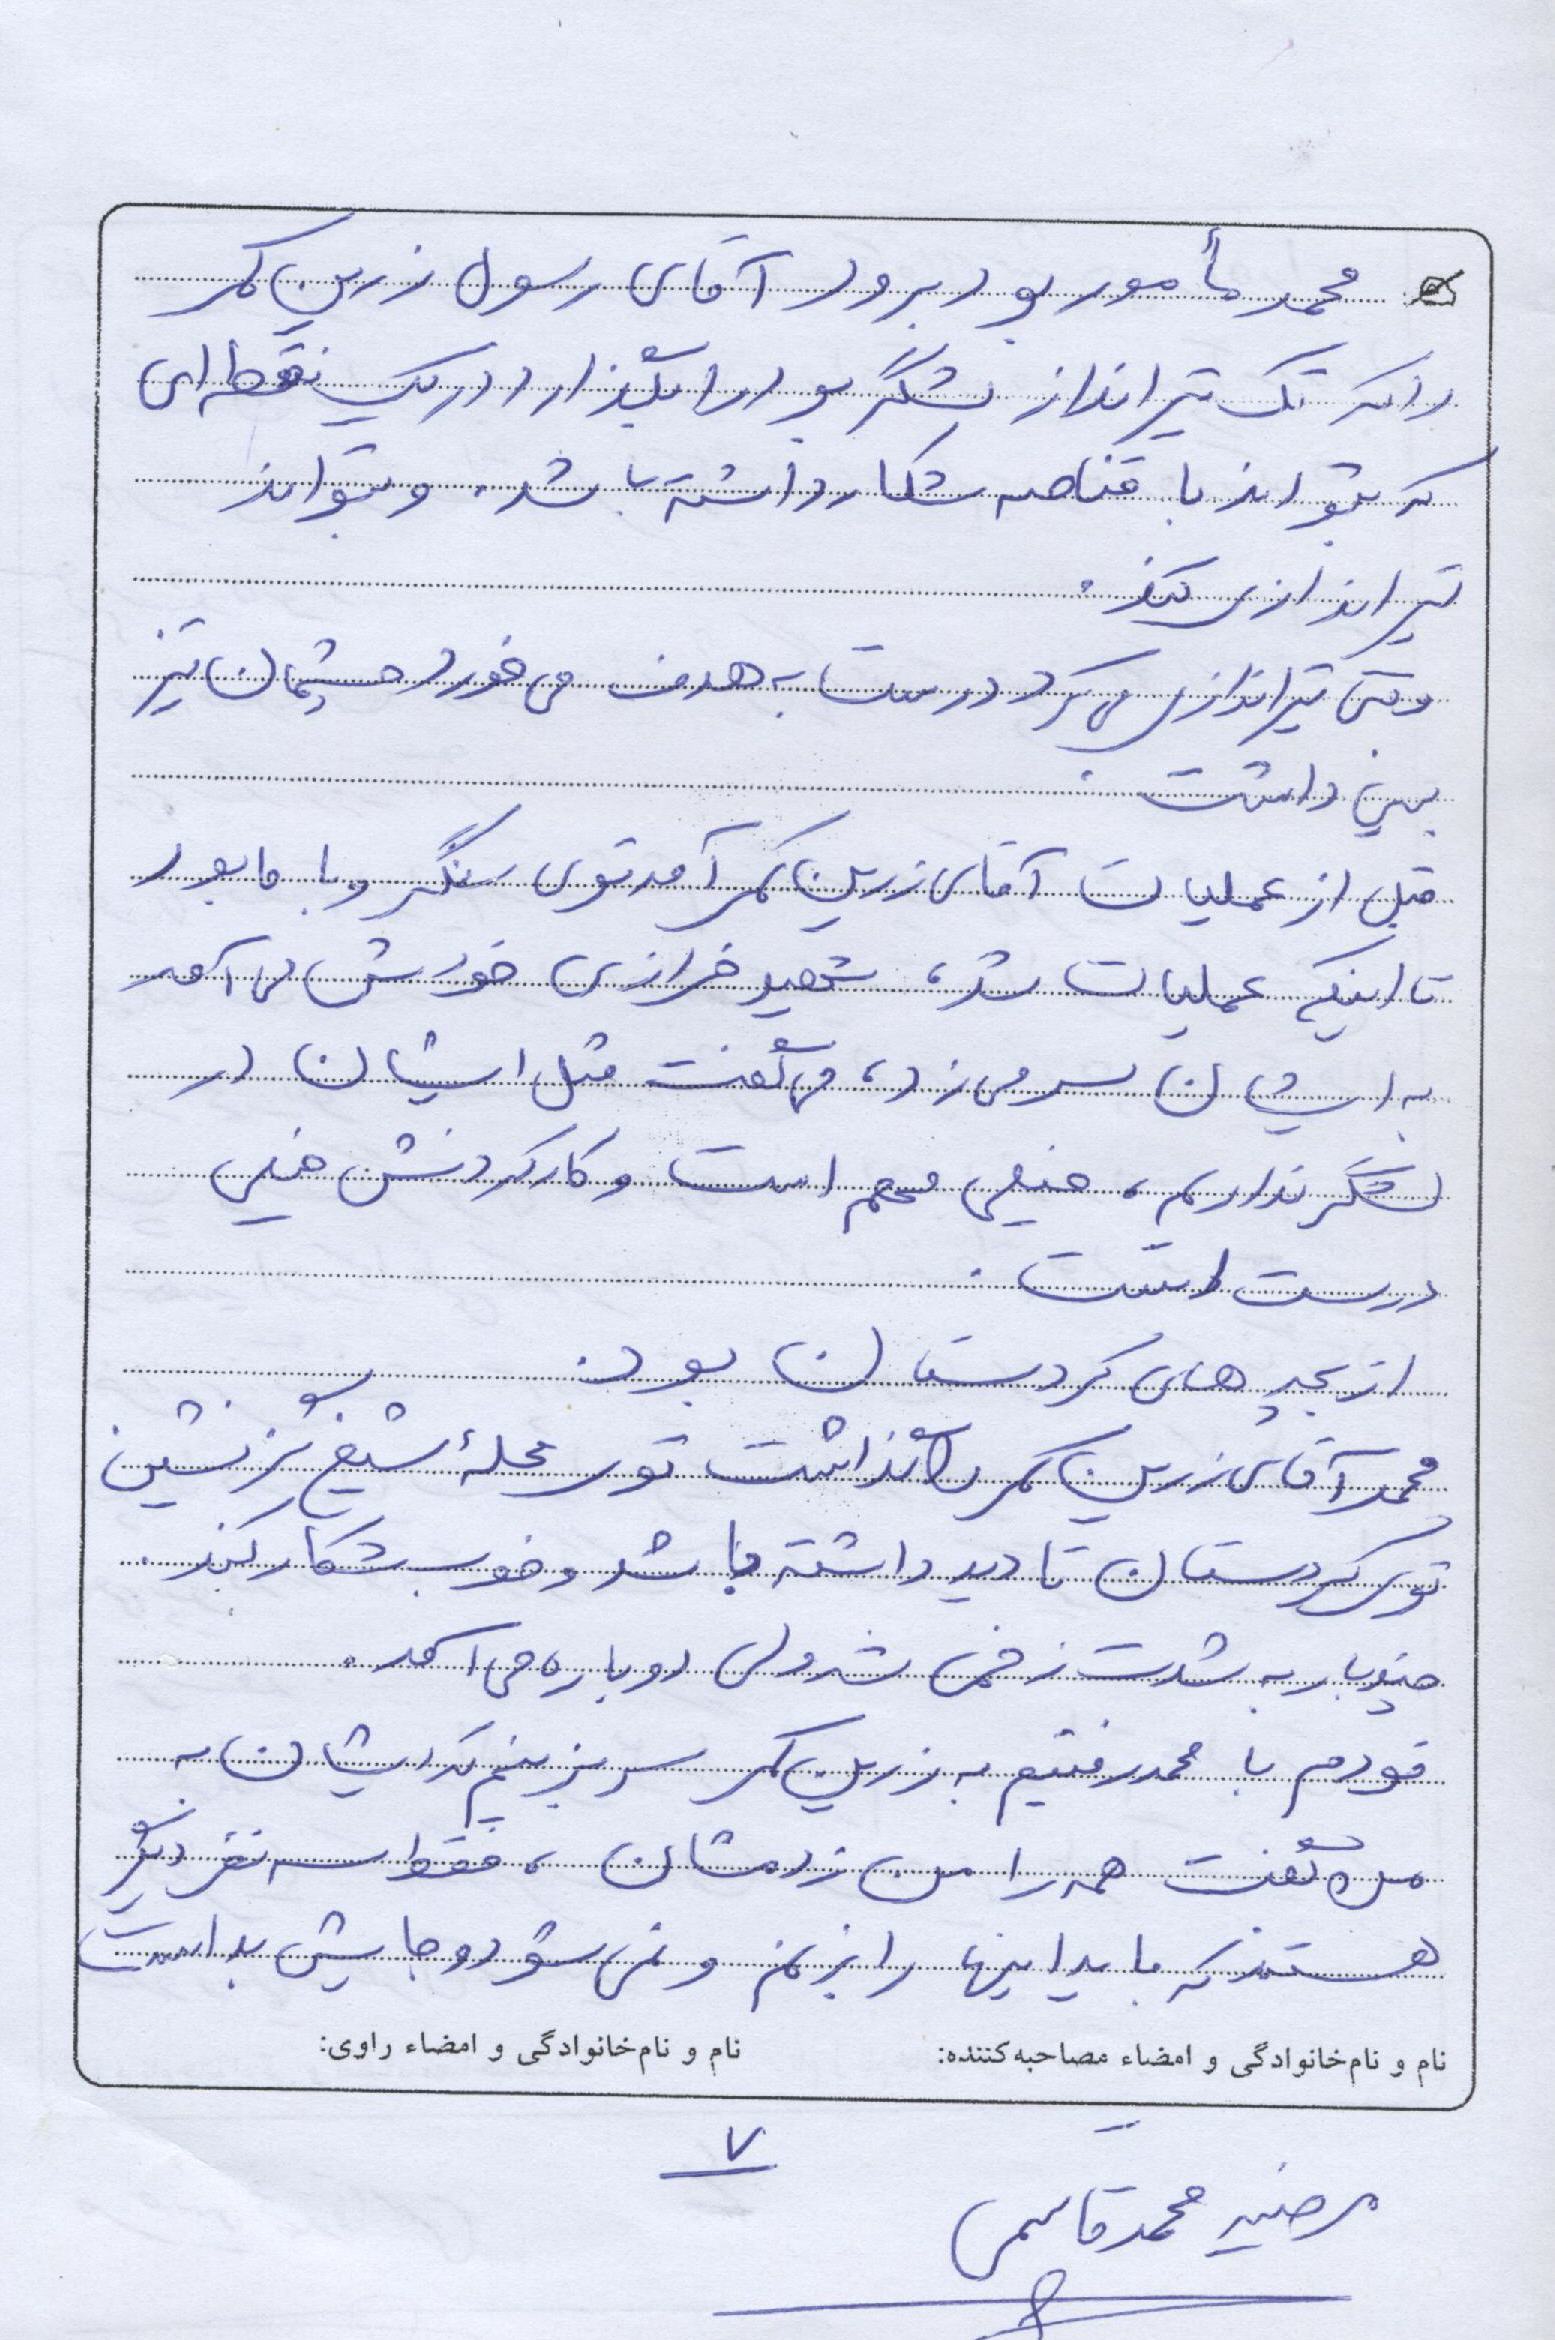 محمد مأمور بود برود آقای رسول زرین کمر
را که تک تیرانداز لشگر بود را بگذارد در یک نقطه ای
که بتواند با قناصه شکار داشته باشد. و بتواند
تیراندازی کند.
وقتی تیراندازی می کرد درست به هدف می خورد چشمان تیز
بین داشت.
قبل از عملیات آقای زرین کمر آمد توی سنگر و با ما بود
تا اینکه عملیات شد، شهید خرازی خودش می آمد
به ایشان سر می زد، می گفت مثل ایشان در
لشگر نداریم، خیلی مهم است و کار کردنش خیلی
درست است.
از بچه های کردستان بود.
محمد آقای زرین کمر را گذاشت توی محله شیخ گزنشین
توی کردستان تا دید داشته باشد و خوب شکار کند.
چند بار به شدت زخمی شد ولی دوباره می آمد.
خودم با محمد رفتیم به زرین کمر سر بزنیم که ایشان به
من گفت همه را من زدمشان، فقط سه نفر دیگر
هستند که باید اینها را بزنم و نمی شود و جایش بد است
نام و نام خانوادگی و امضاء مصاحبه کننده: نام و نام خانوادگی و امضاء راوی:
۷
مرضیه محمد قاسمی